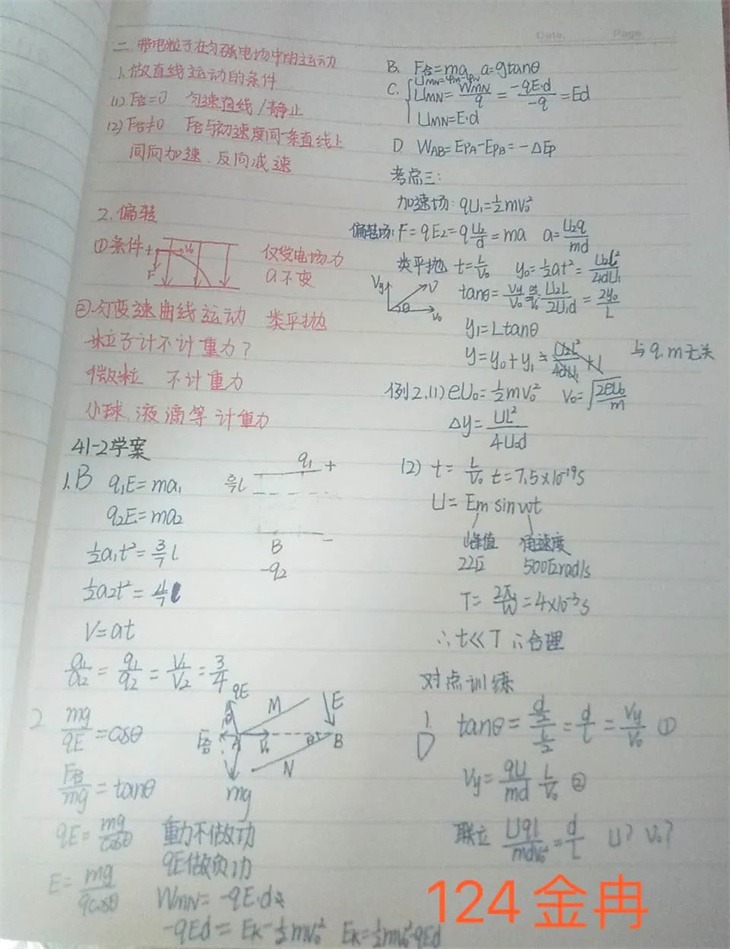 二、带电粒子在匀强电场中的运动
1、做直线运动的条件
(1) F合=0 匀速直线/静止
(2) F合≠0 F合与初速度同一条直线上
同向加速、反向减速
2、偏转
①条件 仅受电场力
a不变
F
V₀
②匀变速曲线运动 类平抛
粒子计不计重力?
微粒 不计重力
小球、液滴等 计重力
41-2学案
1、B q₁E=ma₁
q₂E=ma₂
½a₁t²=3/7 l
½a₂t²=4/7 l
V=at
a₁/a₂=q₁/q₂=V₁/V₂=3/4
q₁ +
3/7 l
B -
-q₂
2、mg/qE=cosθ
F合/mg=tanθ
qE=mg/cosθ 重力不做功
qE做负功
E=mg/qcosθ WMN=-qE·d
-qEd=Ek-½mv₀² Ek=½mv₀²-qEd
qE M E
F合 A V₀ θ B
N
mg
Date. Page
B. F合=ma a=gtanθ
C. UMN=φM-φN
UMN=WMN/q=-qE·d/-q=Ed
UMN=E·d
D WAB=EPA-EPB=-ΔEp
考点三:
加速场: qU₁=½mv₀²
偏转场: F=qE₂=qU₂/d=ma a=U₂q/md
类平抛 t=L/V₀ y₀=½at²=U₂L²/4dU₁
Vy V θ V₀
tanθ=Vy/V₀=U₂L/2U₁d=2y₀/L
y₁=Ltanθ
y=y₀+y₁ 与q、m无关
例2、(1) eU₀=½mv₀² V₀=√(2eU₀/m)
Δy=UL²/4U₀d
(2) t=L/V₀ t=7.5×10⁻¹⁹s
U=Em sinωt
峰值 角速度
22√2 500√2rad/s
T=2π/ω=4×10⁻³s
∴t≪T ∴合理
对点训练
1、D tanθ=(d/2)/(L/2)=d/L=Vy/V₀ ①
Vy=qU/md L/V₀ ②
联立 Uql/mdv₀²=d/L U? V₀?
124金冉